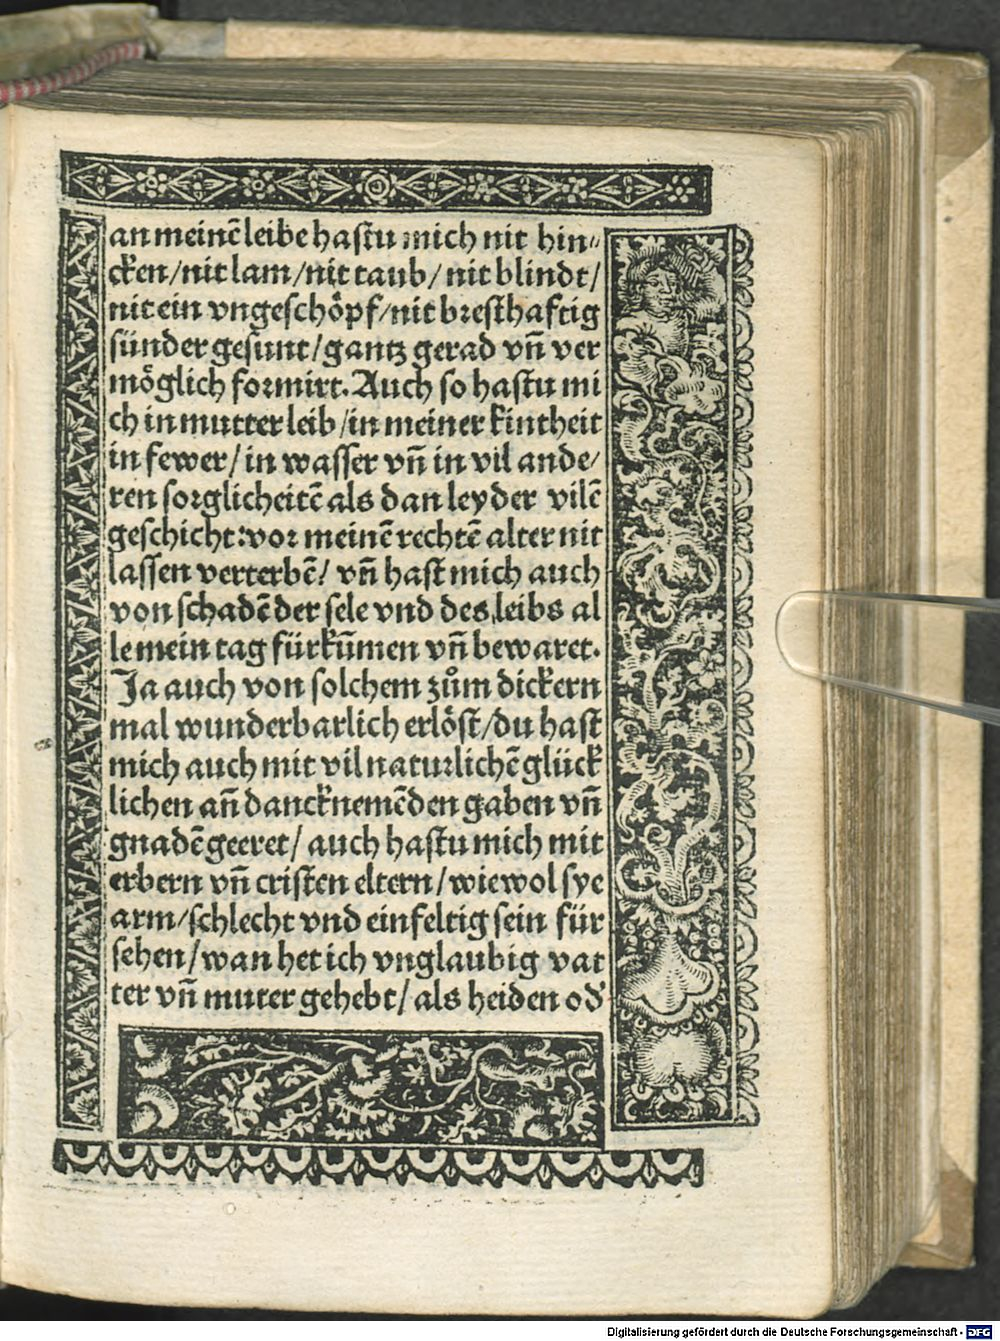 an meinē leibe hastu mich nit hin⸗
cken/nit lam/nit taub/ nit blindt/
nit ein vngeschöpf/nit bresthaftig
sünder gesunt/gantz gerad vn̄ ver
möglich formirt. Auch so hastu mi
ch in mutter leib/in meiner kintheit
in fewer/ in wasser vn̄ in vil ande/
ren sorglicheitē als dan leyder vilē
geschicht:vor meinē rechtē alter nit
lassen verterbē/ vn̄ hast mich auch
von schadē der sele vnd des leibs al
le mein tag fürkūmen vn̄ bewaret.
Ja auch von solchem zům dickern
mal wunderbarlich erlöst/du hast
mich auch mit vil naturlichē glück
lichen an̄ dancknemēden gaben vn̄
gnadē geeret/ auch hastu mich mit
erbern vn̄ cristen eltern/wiewol sye
arm/schlecht vnd einfeltig sein für
sehen/wan het ich vnglaubig vat
ter vn̄ muter gehebt/ als heiden od̕
Digitalisierung gefördert durch die Deutsche Forschungsgemeinschaft - DFG